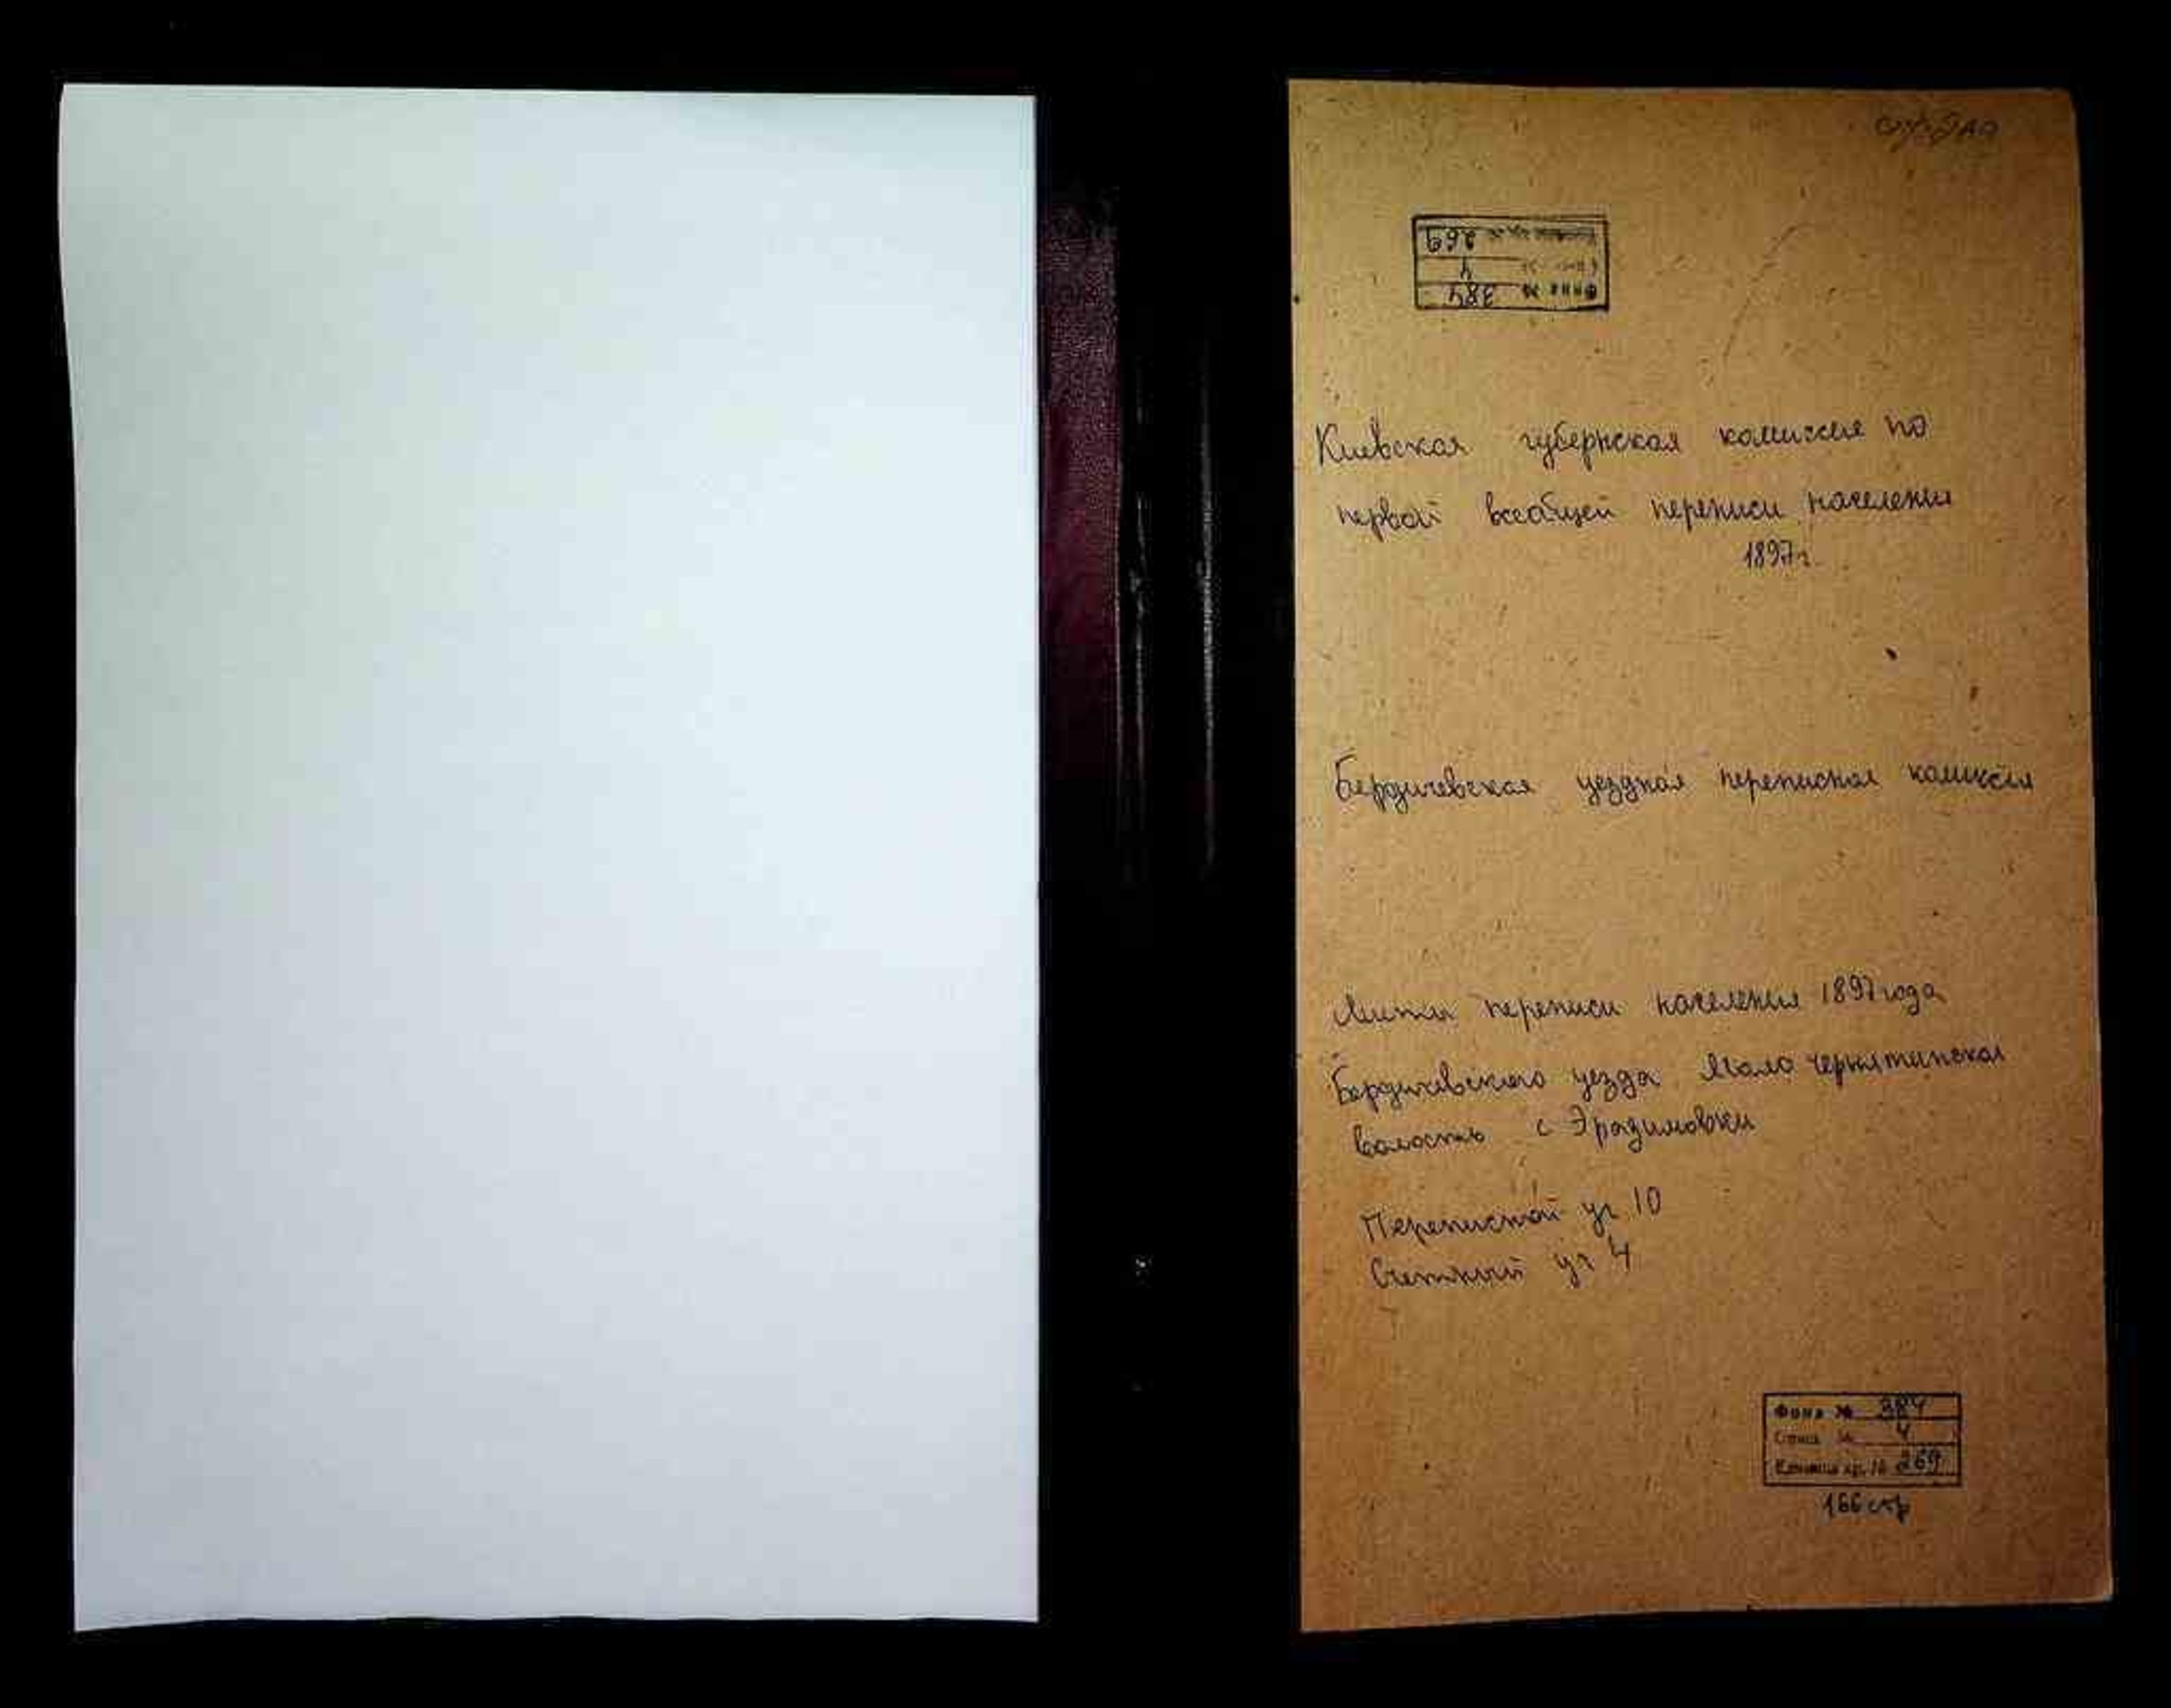 Фонд № 384
4
269
Киевская губернская комиссия по
первой всеобщей переписи населения
1897г.
Бердичевская уездная переписная комиссия
Листы переписи населения 1897 года
Бердичевского уезда Мало чернятинская
волость с Эразимовки
Переписной уч 10
Счетный уч 4
Фонд № 384
Опись № 4
Единица хр. № 269
166 стр